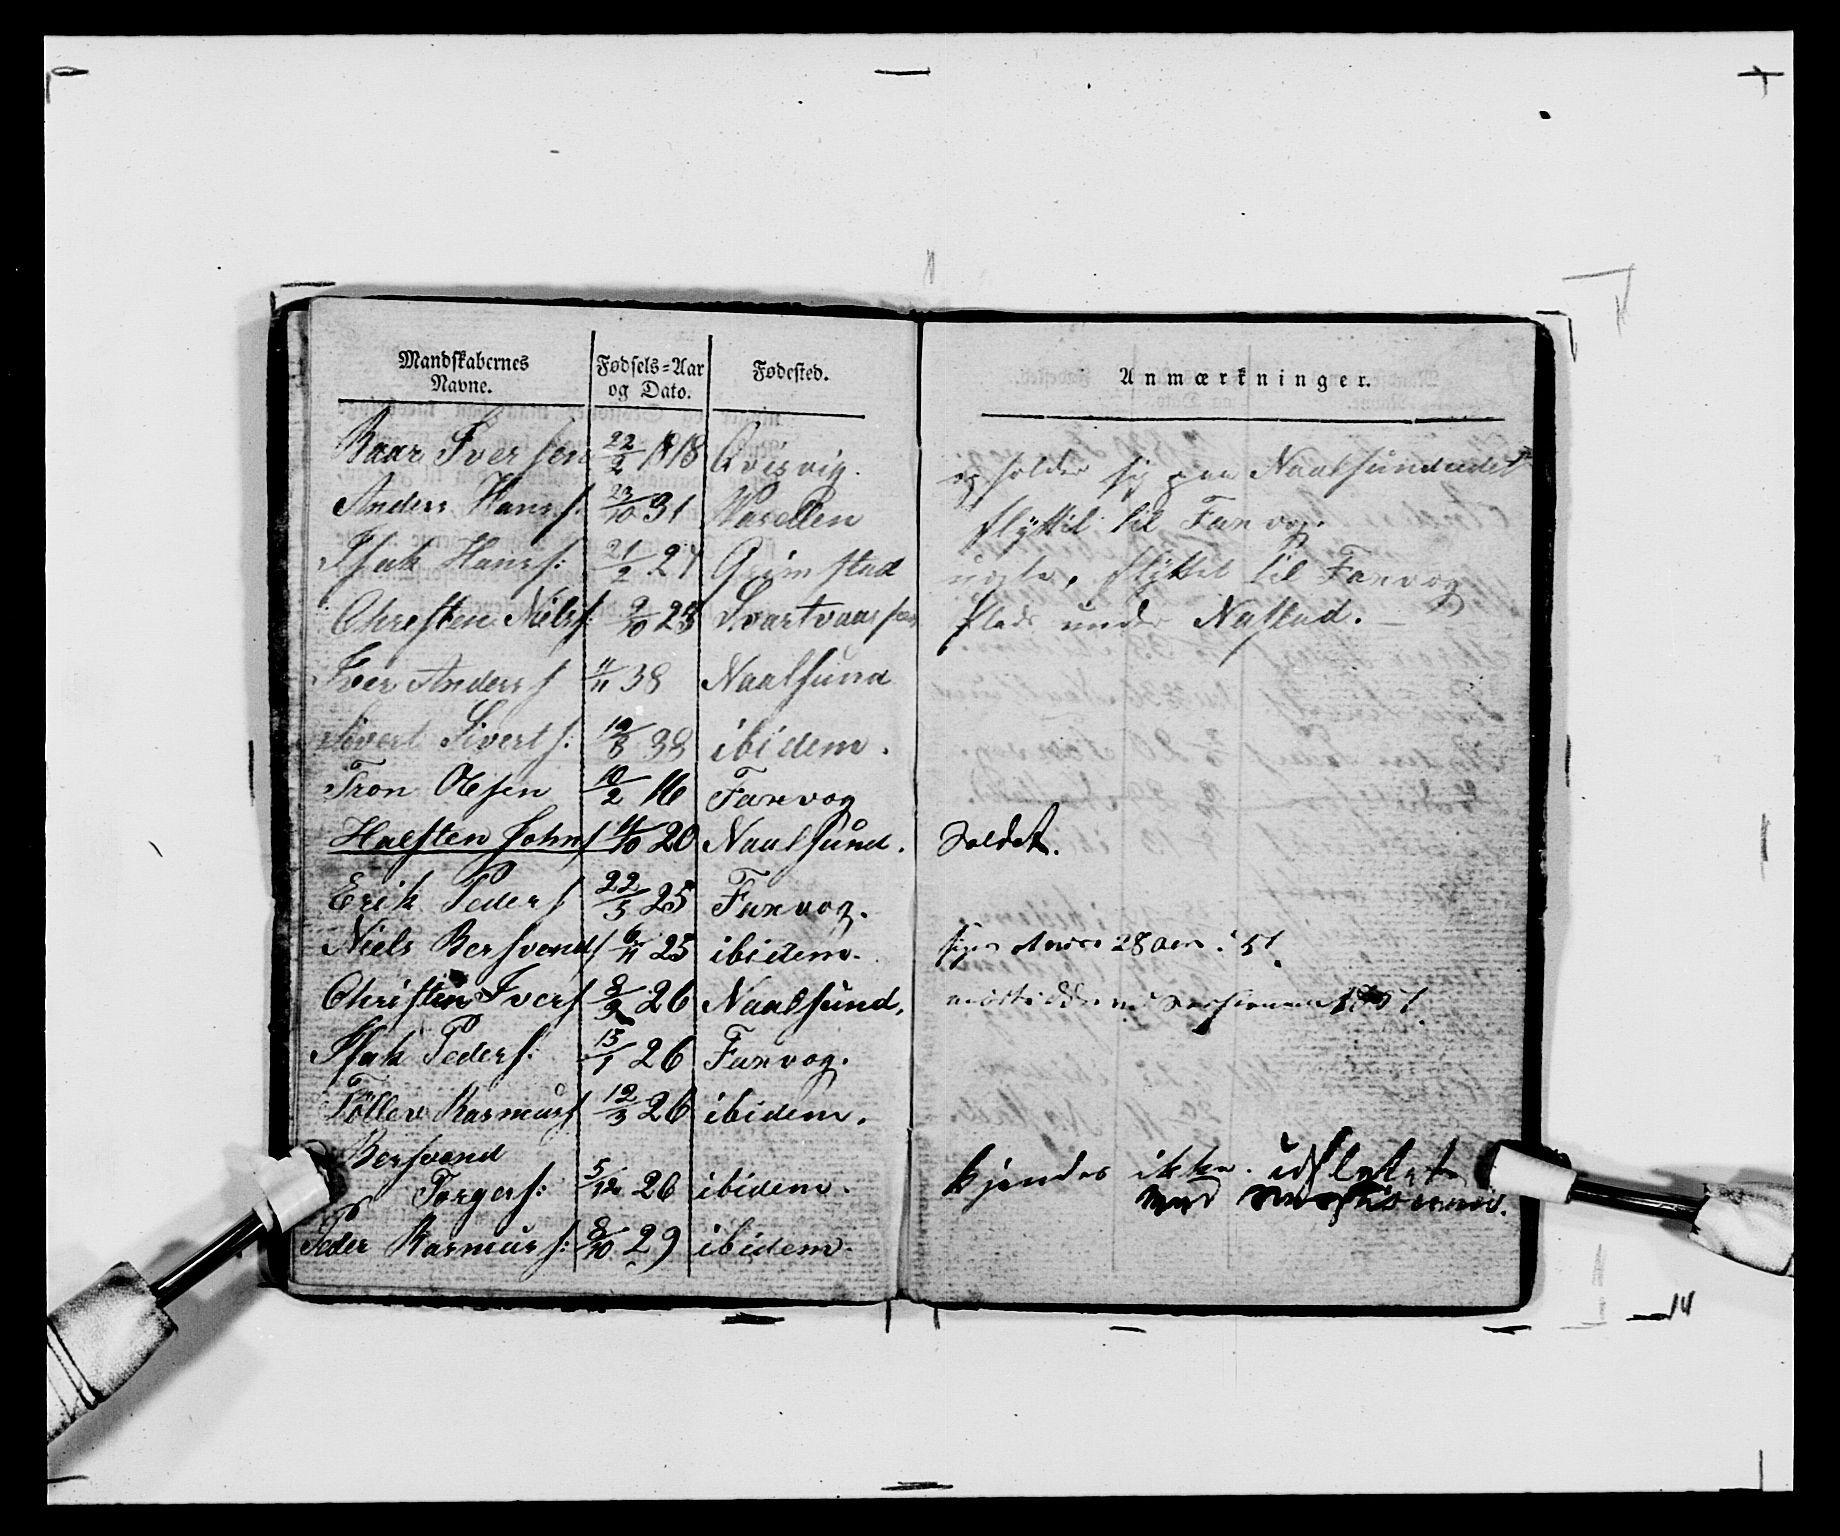 Mandskabernes Navne. Fødsels=Aar og Dato. Fødested. Anmærkninger.
Baar Iversen 22/2 1818 Qvisvig. opholder sig paa Naalsundeidet
Anders Hanss: 23/10 31 flyttet til Farvog.
Isak Hanss: 21/2 27 Grimstad flyttet til Farvog
Christen Nielss: 2/10 25 plads under Nastad.
Iver Anderss 11/11 38 Naalsund
Sivert Siverts: 19/8 38 ibidem.
Tron Olsen 10/2 16 Farvog
Halsten Johns 11/10 20 Naalsund. Soldat.
Erik Peders 22/5 25 Farvog.
Niels Bersvends 6/11 25 ibidem. 28 i 51.
Christen Ivers 8/3 26 Naalsund, 1851.
Isak Peders: 13/1 26 Farvog.
Töllev Rasmuss 12/3 26 ibidem.
Bersvend
Torgers: 5/12 26 ibidem. kjendes ikke. udflyttet
med
Peder Rasmuss: 8/10 29 ibidem.
14